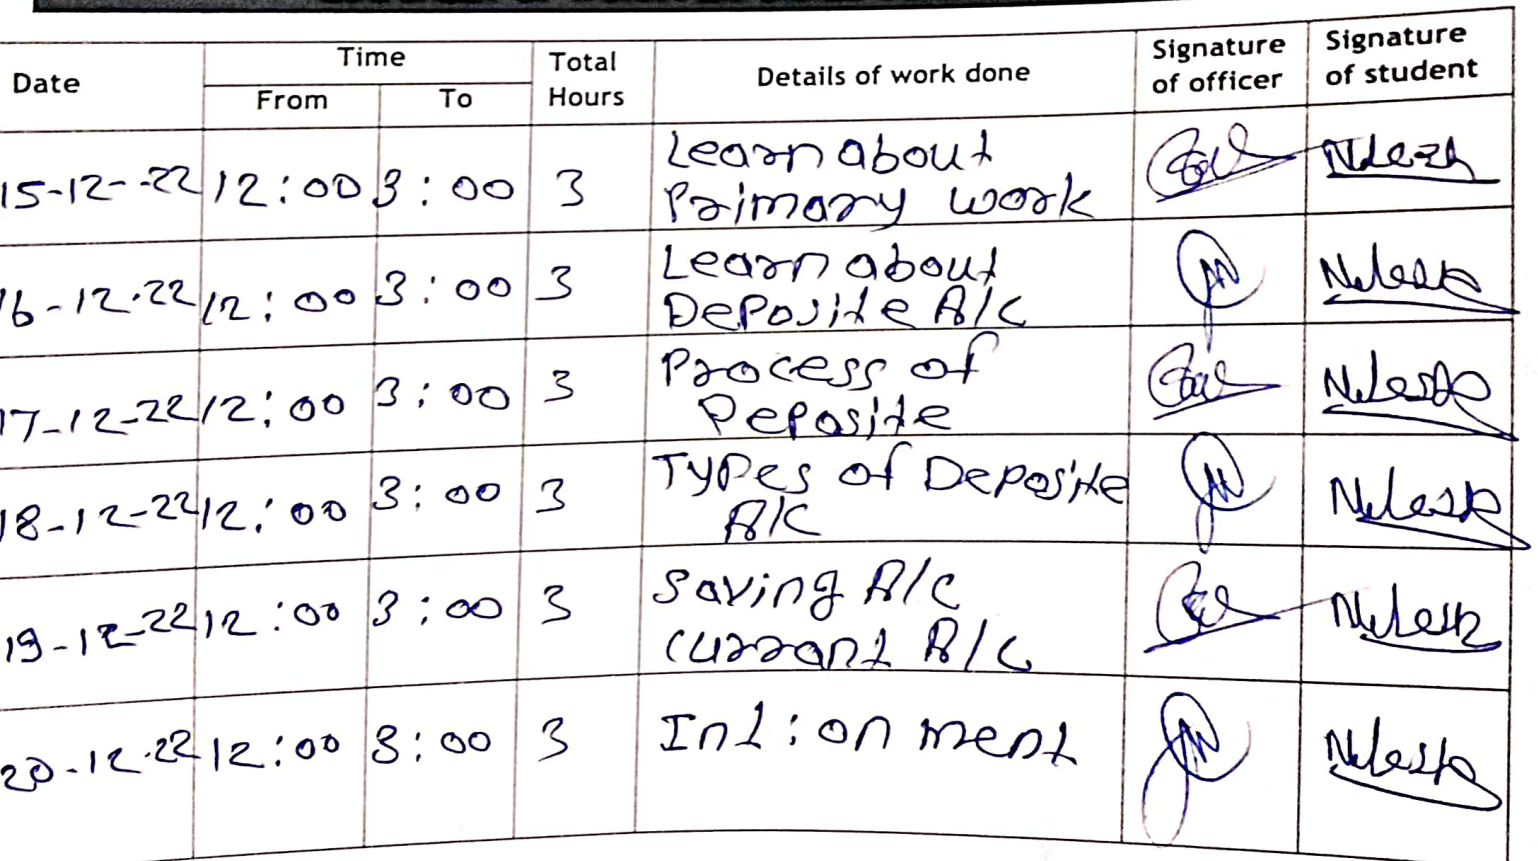 Date Time Total Hours Details of work done Signature of officer Signature of student
From To
15-12--22 12:00 3:00 3 Learn about
Primary work Nilesh
16-12-22 12:00 3:00 3 Learn about
Deposite A/c Nilesh
17-12-22 12:00 3:00 3 Process of
Deposite Nilesh
18-12-22 12:00 3:00 3 Types of Deposite
A/c Nilesh
19-12-22 12:00 3:00 3 Saving A/c
currant A/c Nilesh
20-12-22 12:00 3:00 3 Int: on ment Nilesh